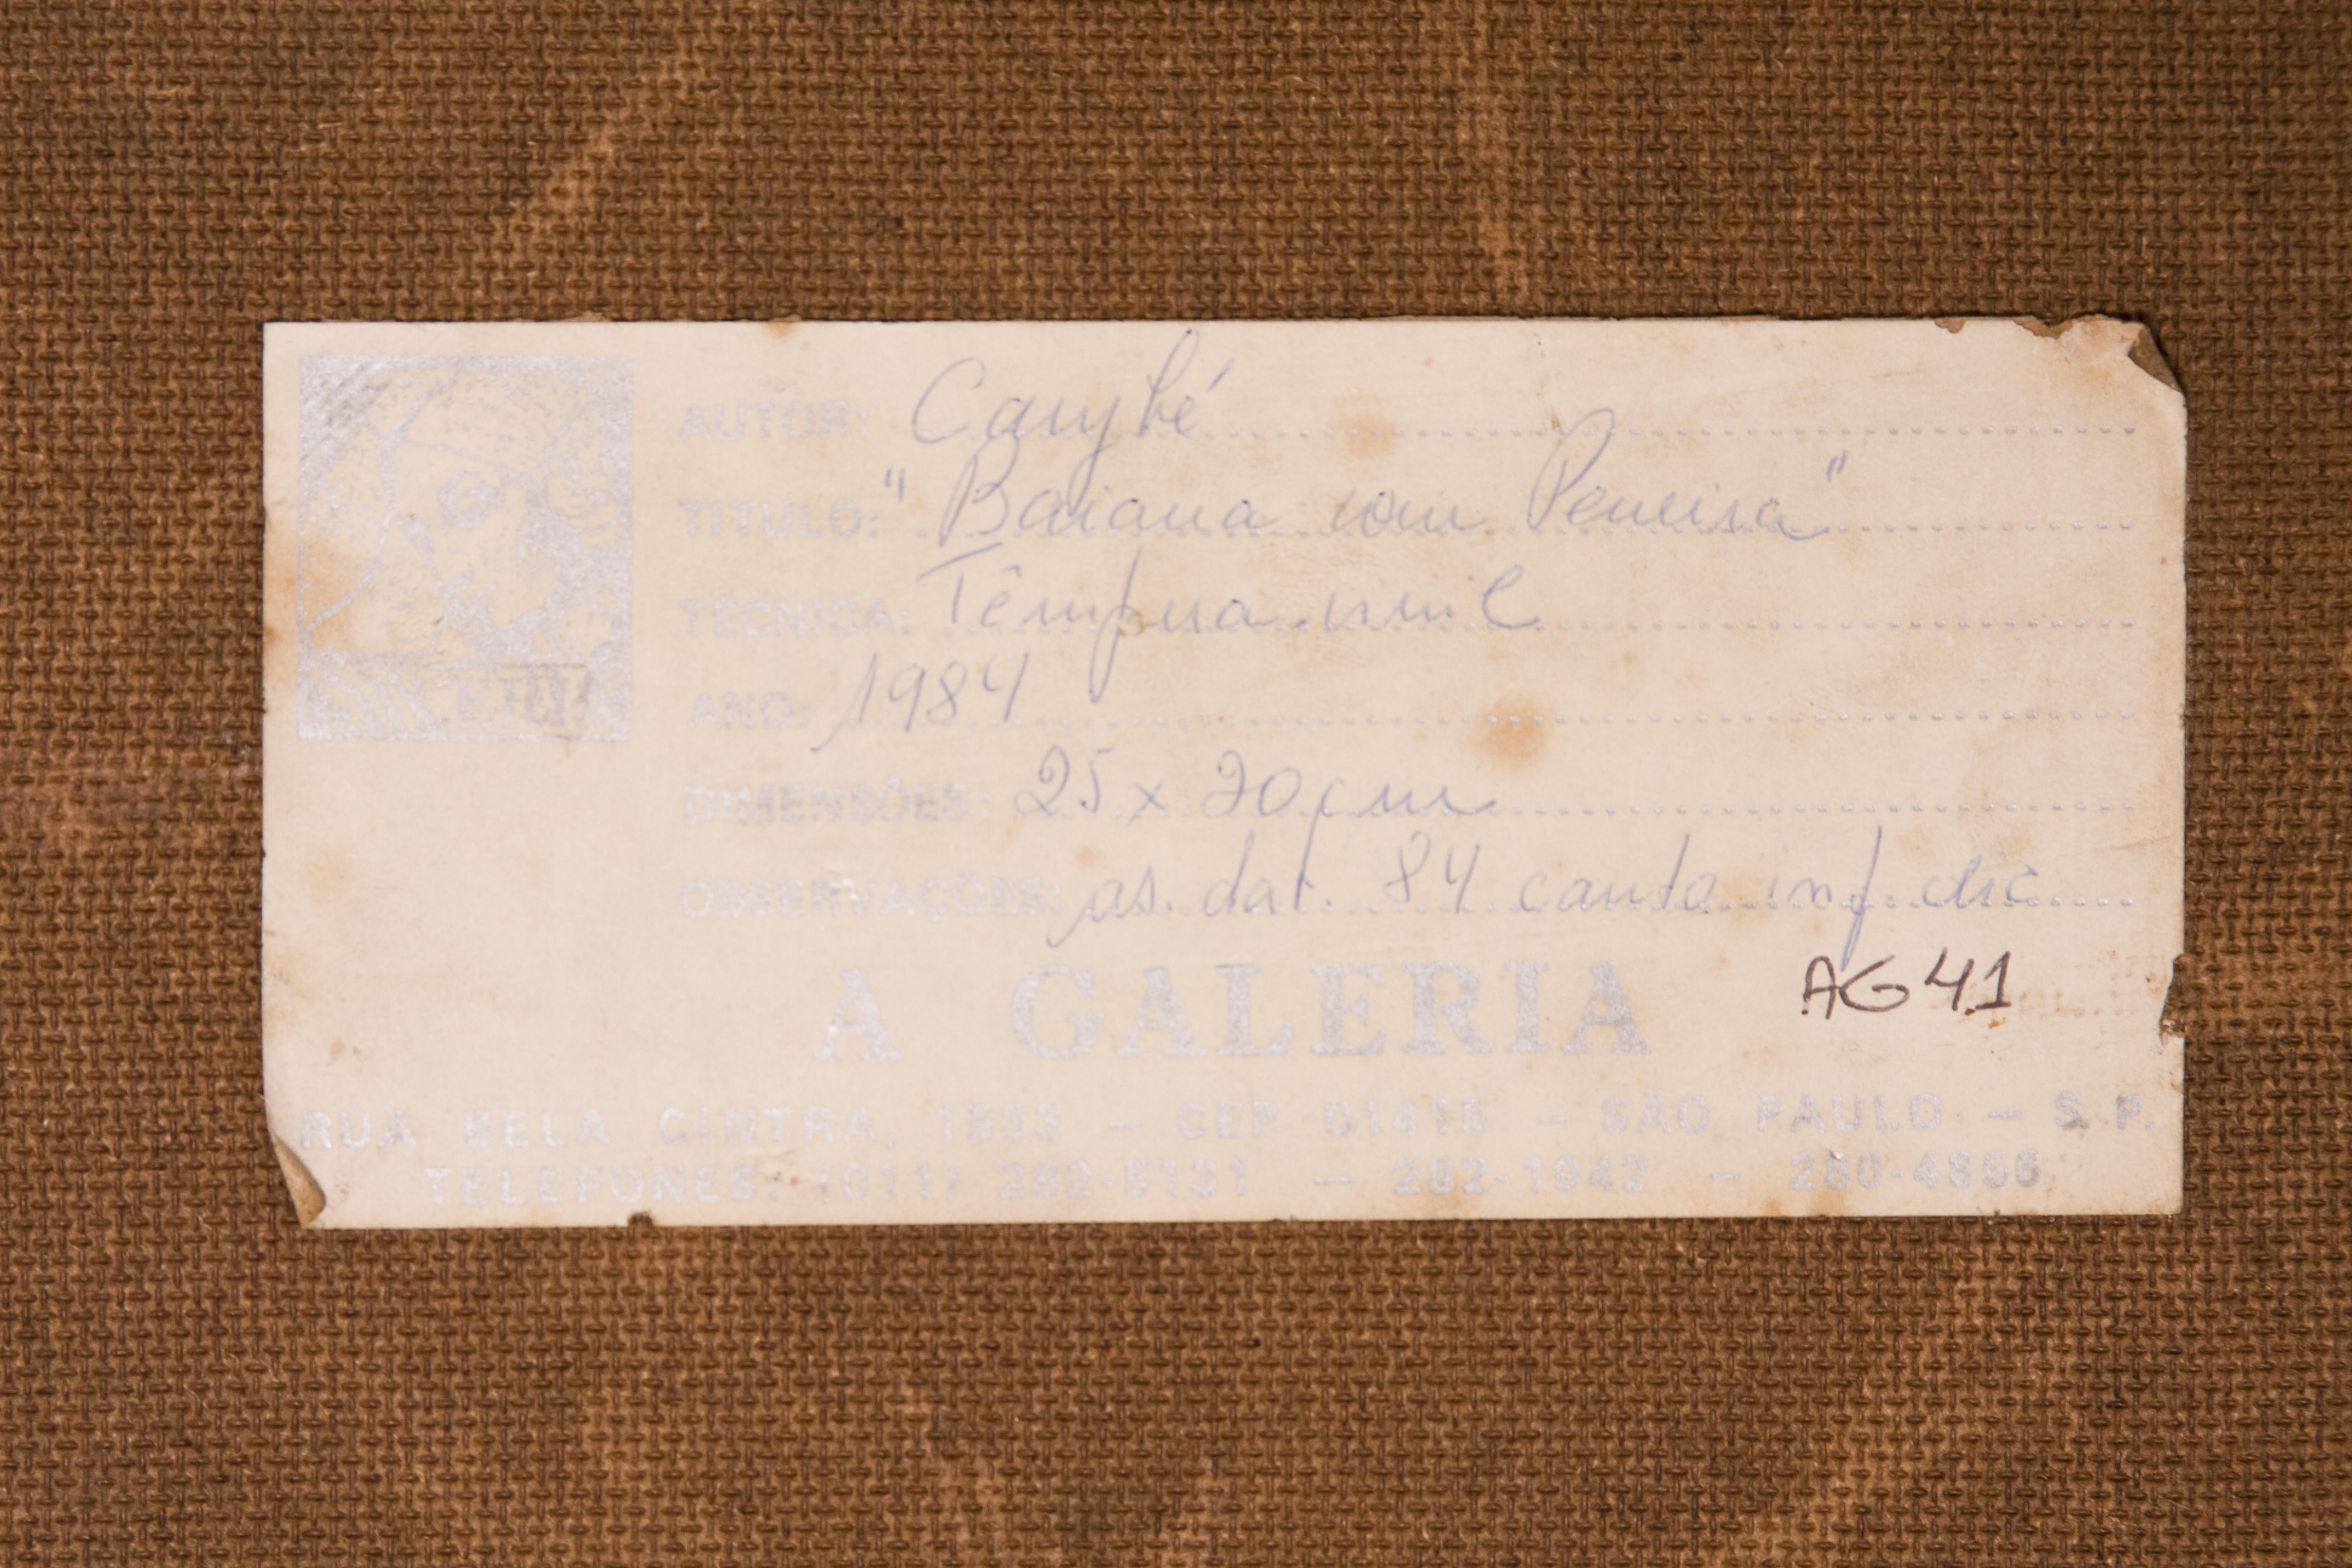 AUTOR: Carybé
TITULO: "Baiana com Peneira"
TÉCNICA: Têmpera vinil
ANO: 1984
DIMENSÕES: 25 x 20 cm
OBSERVAÇÕES: as. dat. 84 canto inf. dir.
A GALERIA
AG 41
RUA BELA CINTRA, 1533 — CEP 01415 — SÃO PAULO — S.P.
TELEFONES: (011) 282-5131 — 282-1942 — 280-4856